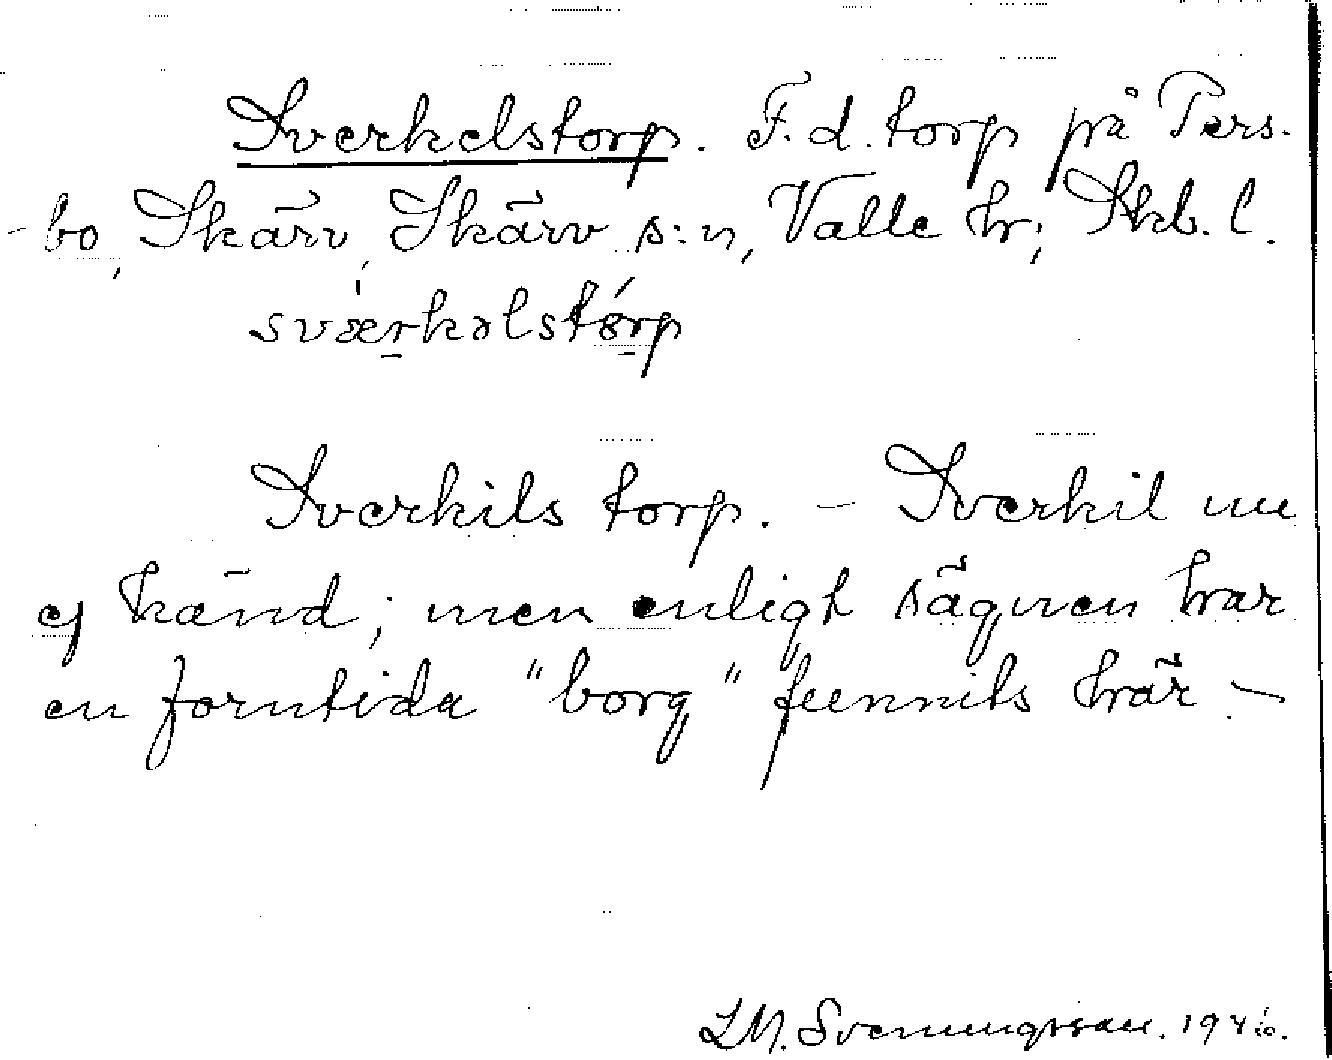 Sverkelstorp. F.d. torp på Pers-
-bo, Skärv, Skärv s:n, Valle hr; Skb. l.
sværkəlstôrp
Sverkils torp. – Sverkil nu
ej känd; men enligt sägnen har
en forntida "borg" funnits här. –
LM. Svenungssan. 1946.